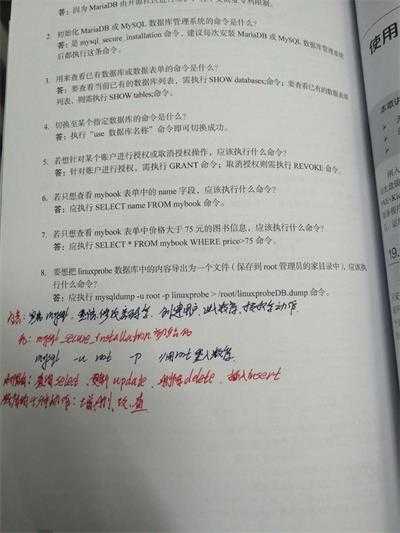 答：因为 MariaDB 由开源社区
2. 初始化 MariaDB 或 MySQL 数据库管理系统的命令是什么？
答：是 mysql_secure_installation 命令，建议每次安装 MariaDB 或 MySQL 数据库管理系统
后都执行这条命令。
3. 用来查看已有数据库或数据表单的命令是什么？
答：要查看当前已有的数据库列表，需执行 SHOW databases;命令；要查看已有的数据表单
列表，则需执行 SHOW tables;命令。
4. 切换至某个指定数据库的命令是什么？
答：执行“use 数据库名称”命令即可切换成功。
5. 若想针对某个账户进行授权或取消授权操作，应该执行什么命令？
答：针对账户进行授权，需执行 GRANT 命令；取消授权则需执行 REVOKE 命令。
6. 若只想查看 mybook 表单中的 name 字段，应该执行什么命令？
答：应执行 SELECT name FROM mybook 命令。
7. 若只想查看 mybook 表单中价格大于 75 元的图书信息，应该执行什么命令？
答：应执行 SELECT * FROM mybook WHERE price>75 命令。
8. 要想把 linuxprobe 数据库中的内容导出为一个文件（保存到 root 管理员的家目录中），应该执
行什么命令？
答：应执行 mysqldump -u root -p linuxprobe > /root/linuxprobeDB.dump 命令。
mysql_secure_installation 初始化
mysql -u root -p //用root登入数据库
查询select、更新update、删除delete、插入insert
增、删、改、查
使用
本章讲
19.